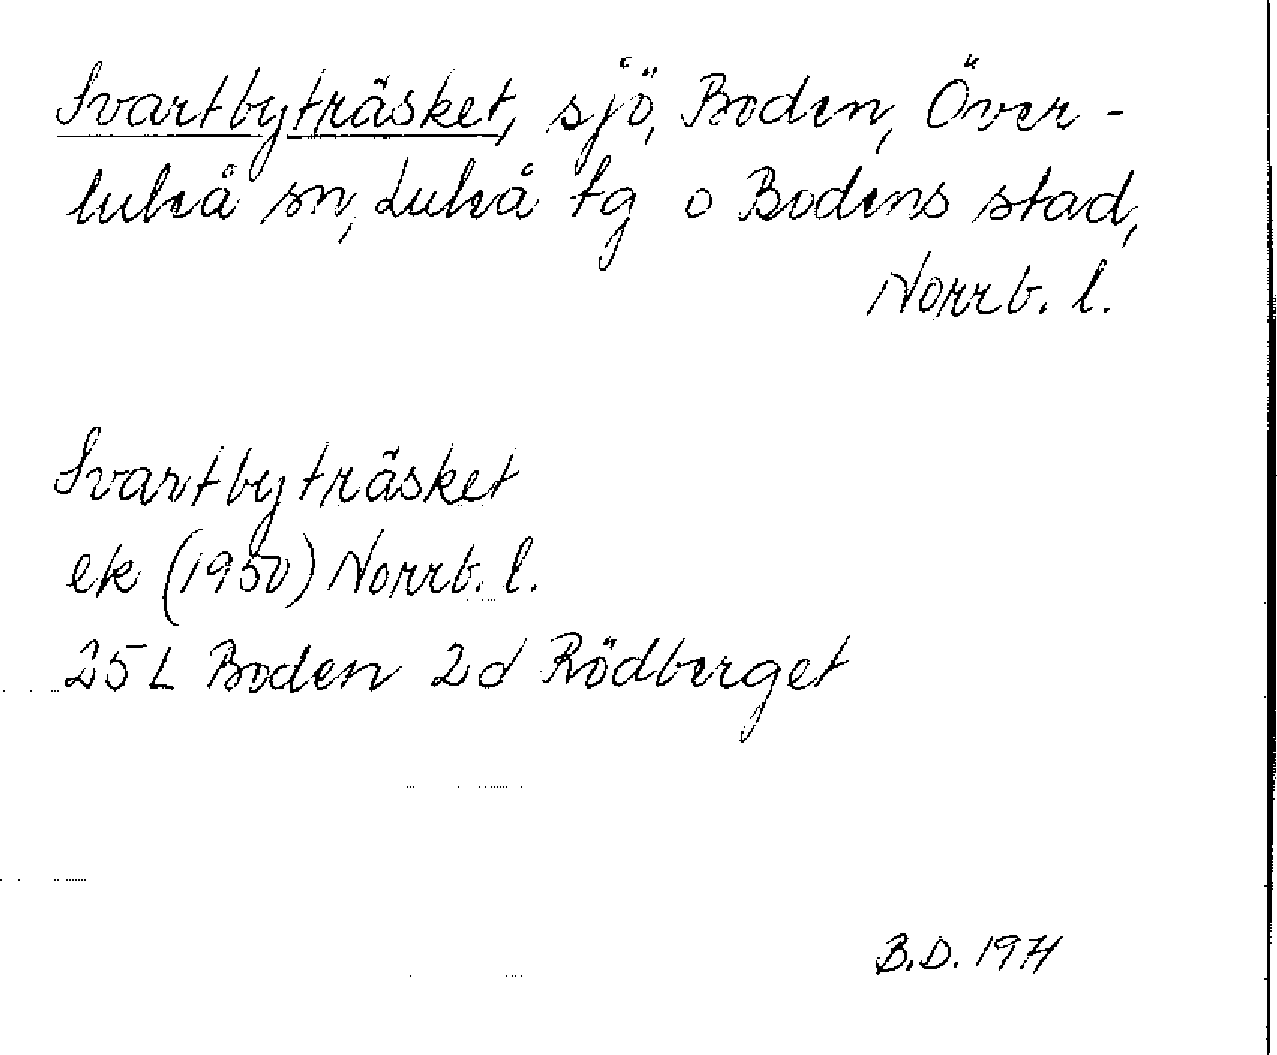 Svartbyträsket, sjö, Boden, Över-
luleå sn, Luleå tg o Bodens stad,
Norrb. l.
Svartbyträsket
ek (1950) Norrb. l.
25 L Boden 2d Rödberget
B.D. 1971